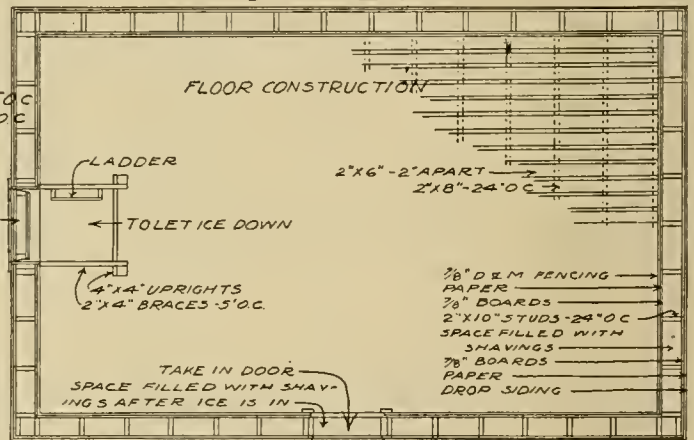 FLOOR CONSTRUCTION
LADDER
TO LET ICE DOWN
4"X4" UPRIGHTS
2"X4" BRACES-5'O.C.
2"X6"-2"APART
2"X8"-24"OC
7/8" D & M FENCING
PAPER
7/8" BOARDS
2"X10" STUDS-24"OC
SPACE FILLED WITH
SHAVINGS
7/8" BOARDS
PAPER
DROP SIDING
TAKE IN DOOR
SPACE FILLED WITH SHAV-
INGS AFTER ICE IS IN